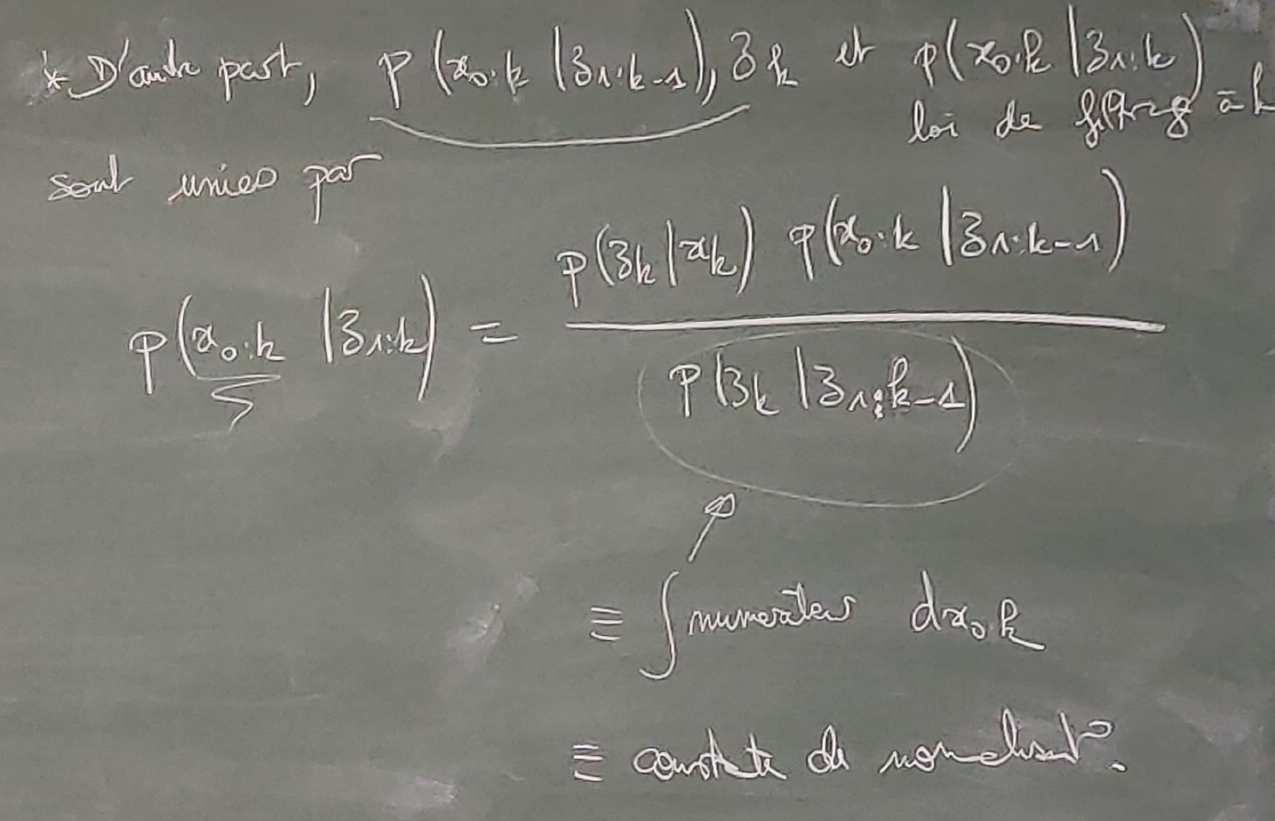 * D'autre part, p(x0:k | z1:k-1), zk et p(x0:k | z1:k)
loi de filtrage à k
sont unies par
p(x0:k | z1:k) = p(zk | xk) p(x0:k | z1:k-1) / p(zk | z1:k-1)
≡ ∫ numérateur dx0:k
≡ constante de normalisat°.